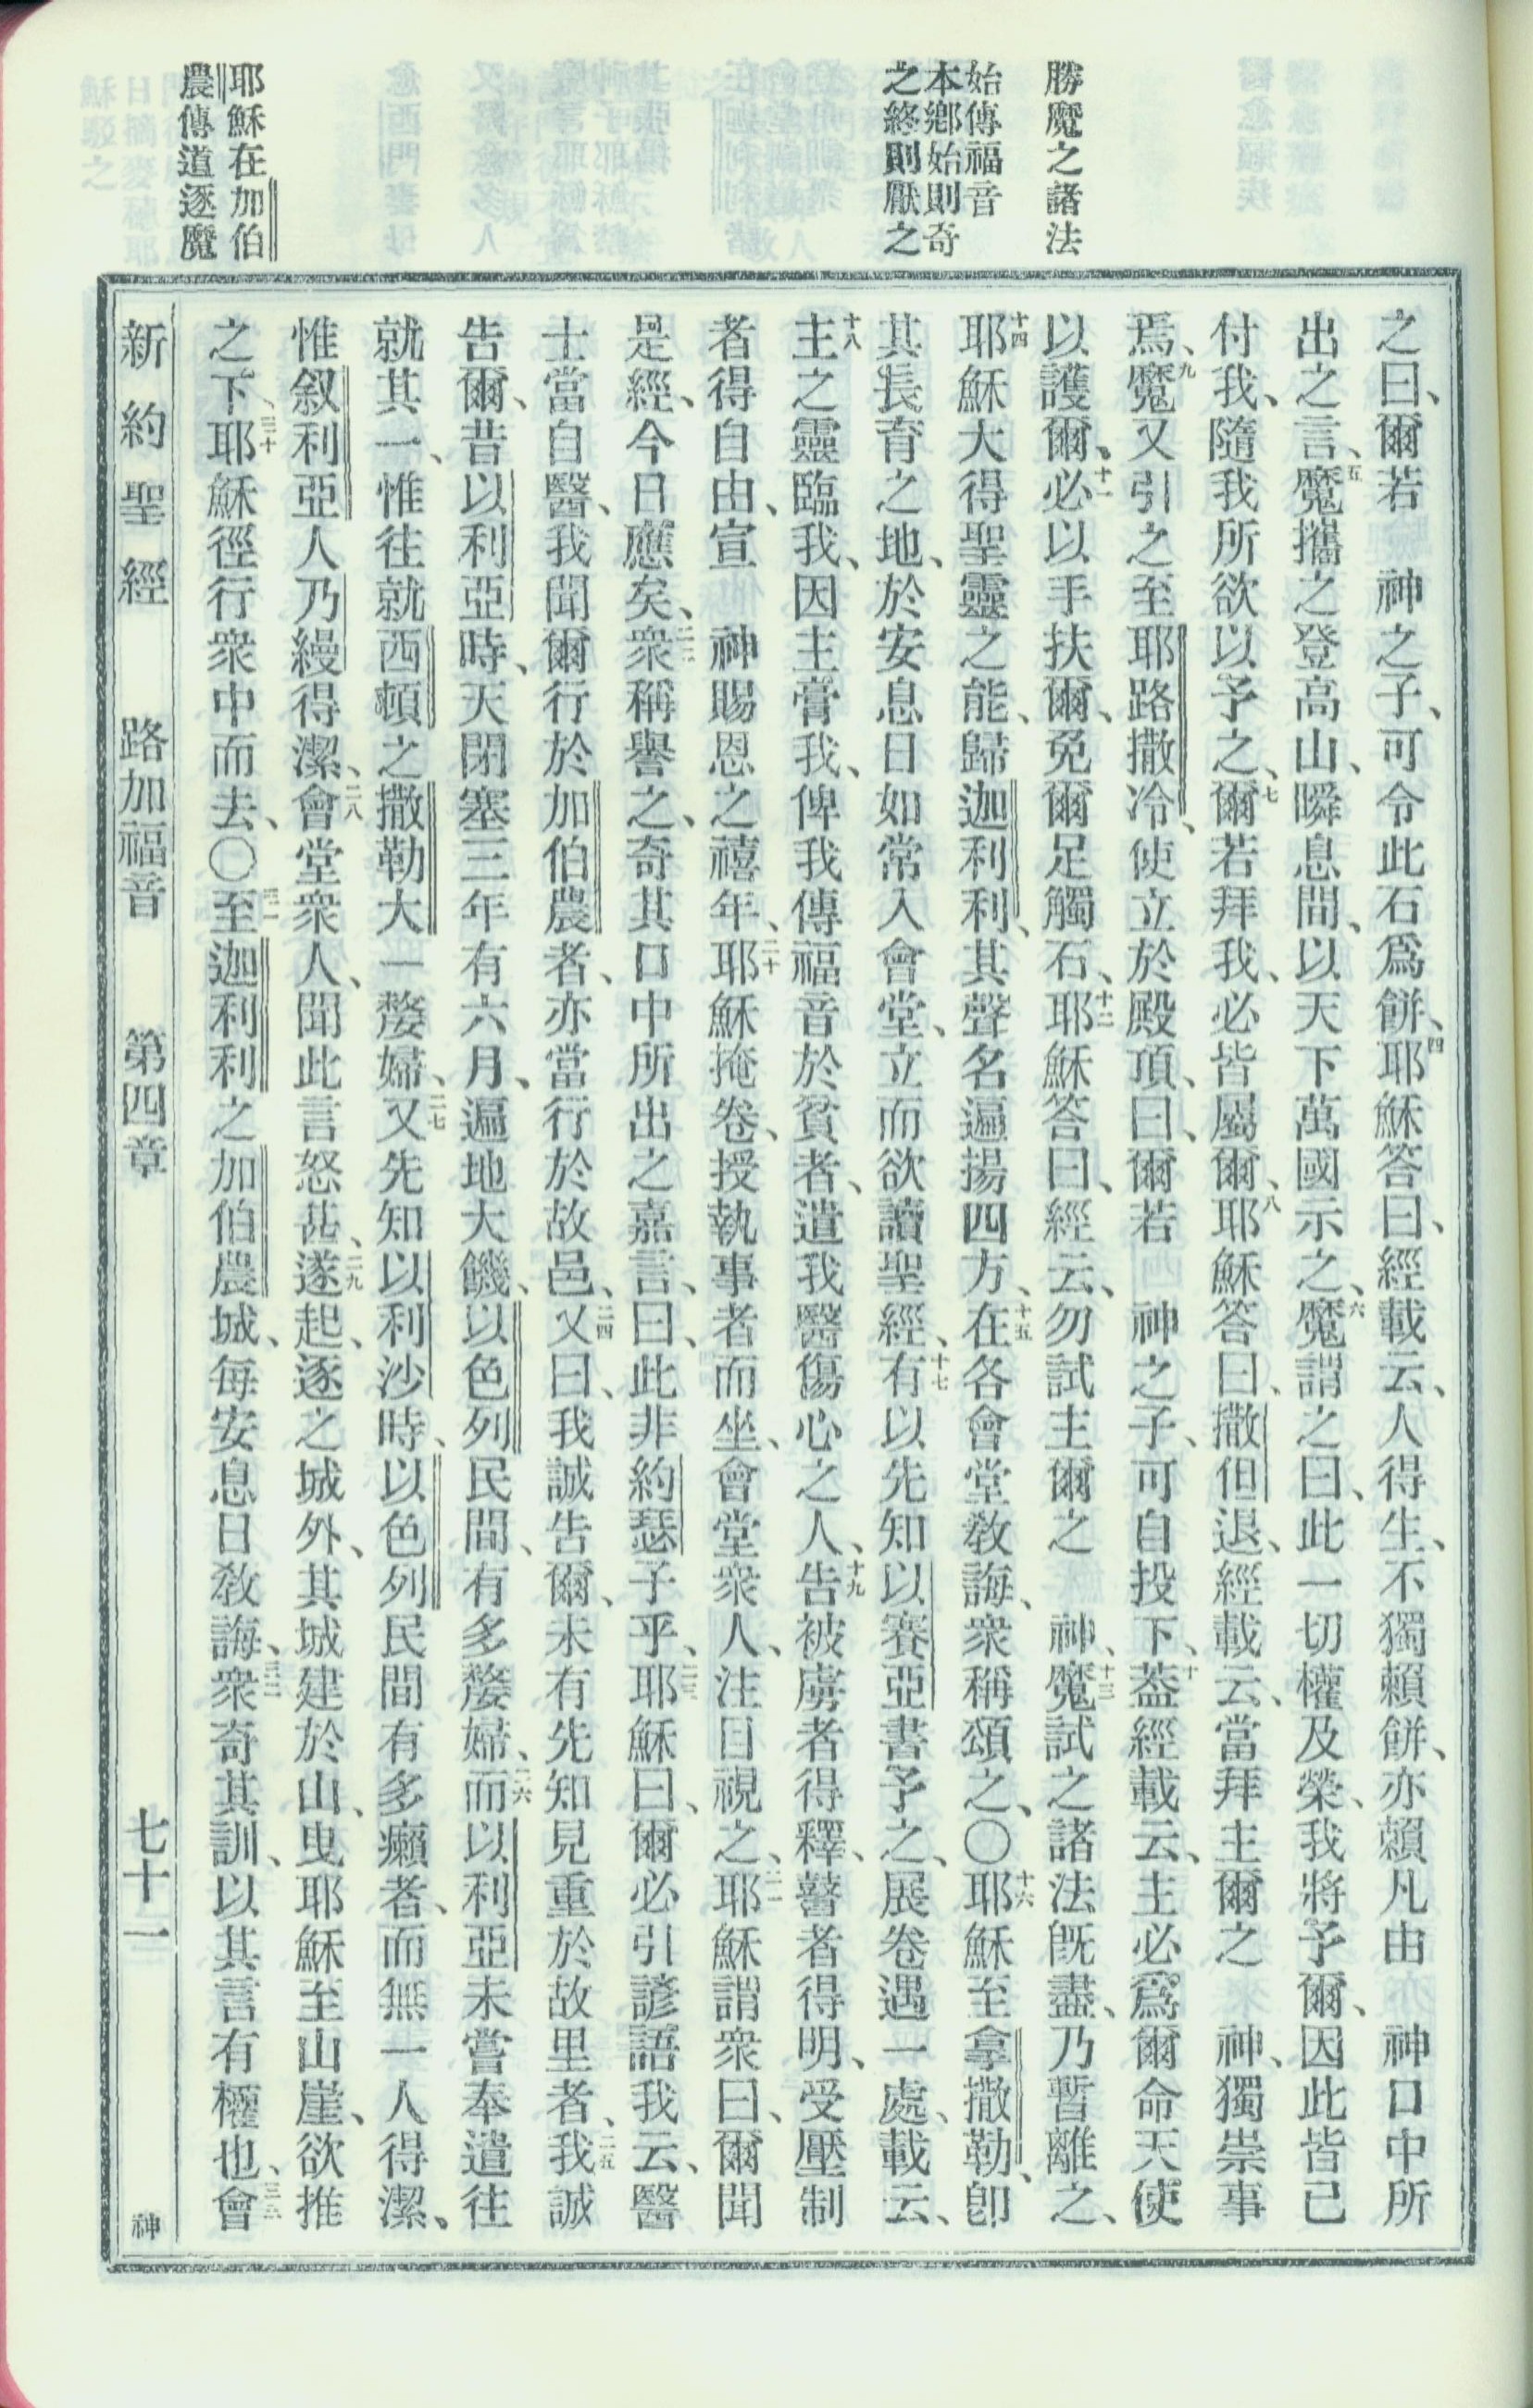 勝魔之諸法
始傳福音
本鄉始則奇
之終則厭之
耶穌在加伯
農傳道逐魔
之曰、爾若　神之子、可令此石爲餅、四耶穌答曰、經載云、人得生、不獨賴餅、亦賴凡由　神口中所
出之言、五魔攜之登高山、瞬息間、以天下萬國示之、六魔謂之曰、此一切權及榮、我將予爾、因此皆已
付我、隨我所欲以予之、七爾若拜我、必皆屬爾、八耶穌答曰、撒但退、經載云、當拜主爾之　神、獨崇事
焉、九魔又引之至耶路撒冷、使立於殿頂、曰、爾若　神之子、可自投下、十蓋經載云、主必爲爾命天使
以護爾、十一必以手扶爾、免爾足觸石、十二耶穌答曰、經云、勿試主爾之　神、十三魔試之諸法旣盡、乃暫離之、
十四耶穌大得聖靈之能、歸迦利利、其聲名遍揚四方、十五在各會堂敎誨、衆稱頌之、〇十六耶穌至拿撒勒、卽
其長育之地、於安息日如常入會堂、立而欲讀聖經、十七有以先知以賽亞書予之、展卷遇一處、載云、
十八主之靈臨我、因主膏我、俾我傳福音於貧者、遣我醫傷心之人、十九告被虜者得釋、瞽者得明、受壓制
者得自由、宣　神賜恩之禧年、二十耶穌掩卷、授執事者而坐、會堂衆人、注目視之、二一耶穌謂衆曰、爾聞
是經、今日應矣、二二衆稱譽之、奇其口中所出之嘉言、曰、此非約瑟子乎、二三耶穌曰、爾必引諺語我云、醫
士當自醫、我聞爾行於加伯農者、亦當行於故邑、二四又曰、我誠告爾、未有先知見重於故里者、二五我誠
告爾、昔以利亞時、天閉塞三年有六月、遍地大饑、以色列民間、有多嫠婦、二六而以利亞未嘗奉遣往
就其一、惟往就西頓之撒勒大一嫠婦、二七又先知以利沙時、以色列民間有多癩者、而無一人得潔、
惟叙利亞人乃縵得潔、二八會堂衆人、聞此言怒甚、二九遂起、逐之城外、其城建於山、曳耶穌至山崖、欲推
之下、三十耶穌徑行衆中而去、〇三一至迦利利之加伯農城、每安息日敎誨、三二衆奇其訓、以其言有權也、三三會
新約聖經　路加福音　第四章　七十一　神